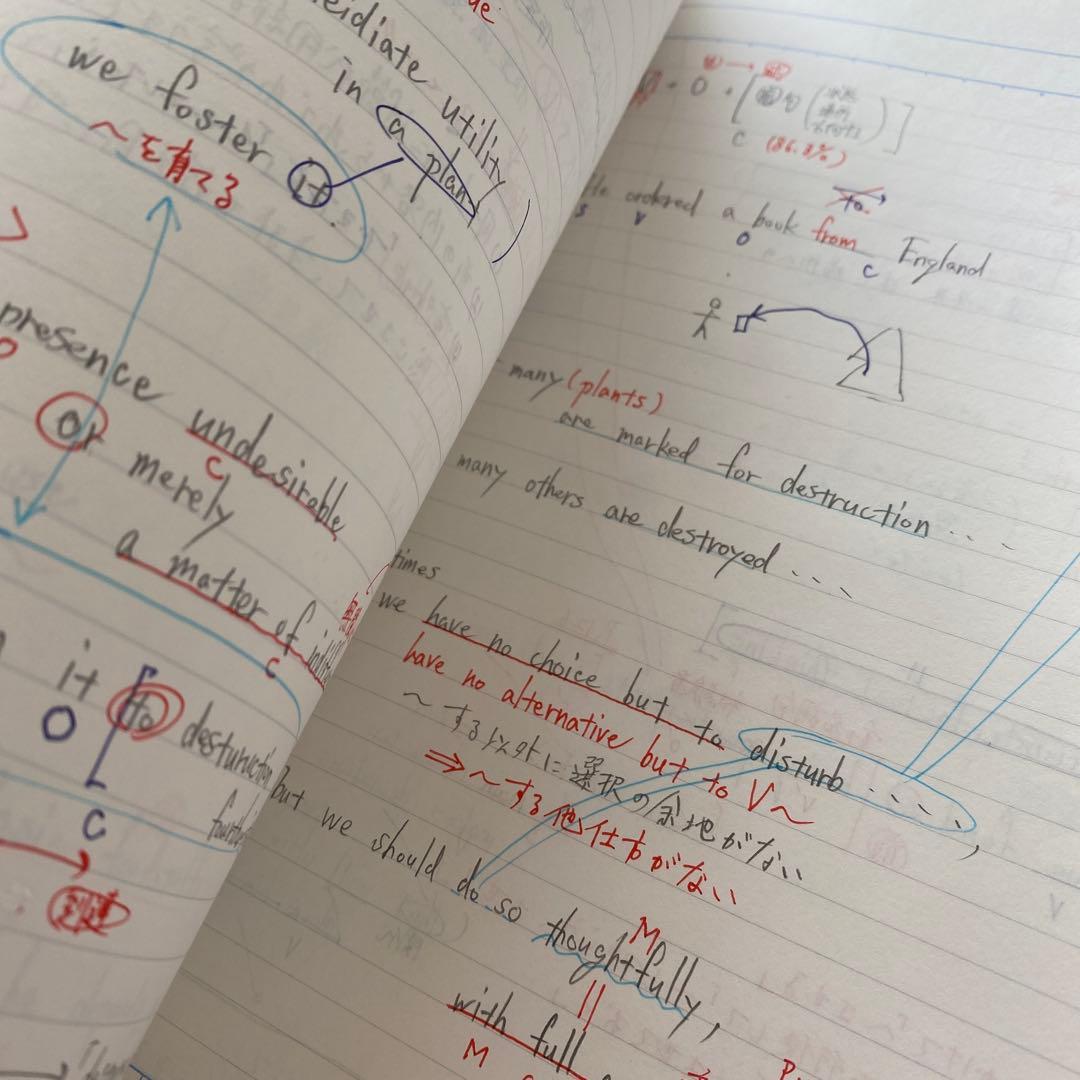 utility
in a plant)
we foster it.
〜を育てる
presence undesirable
O
C
or merely
a matter of
C
it to destunction
O
C
到達
V・O・[前句( )]
C (86.3%)
to
He ordered a book from England
S V O C
many (plants)
are marked for destruction...
many others are destroyed....
times
we have no choice but to disturb....,
have no alternative but to V〜
〜する以外に選択の余地がない
⇒〜する他仕方がない
but we should do so thoughtfully,
M
||
with full
M